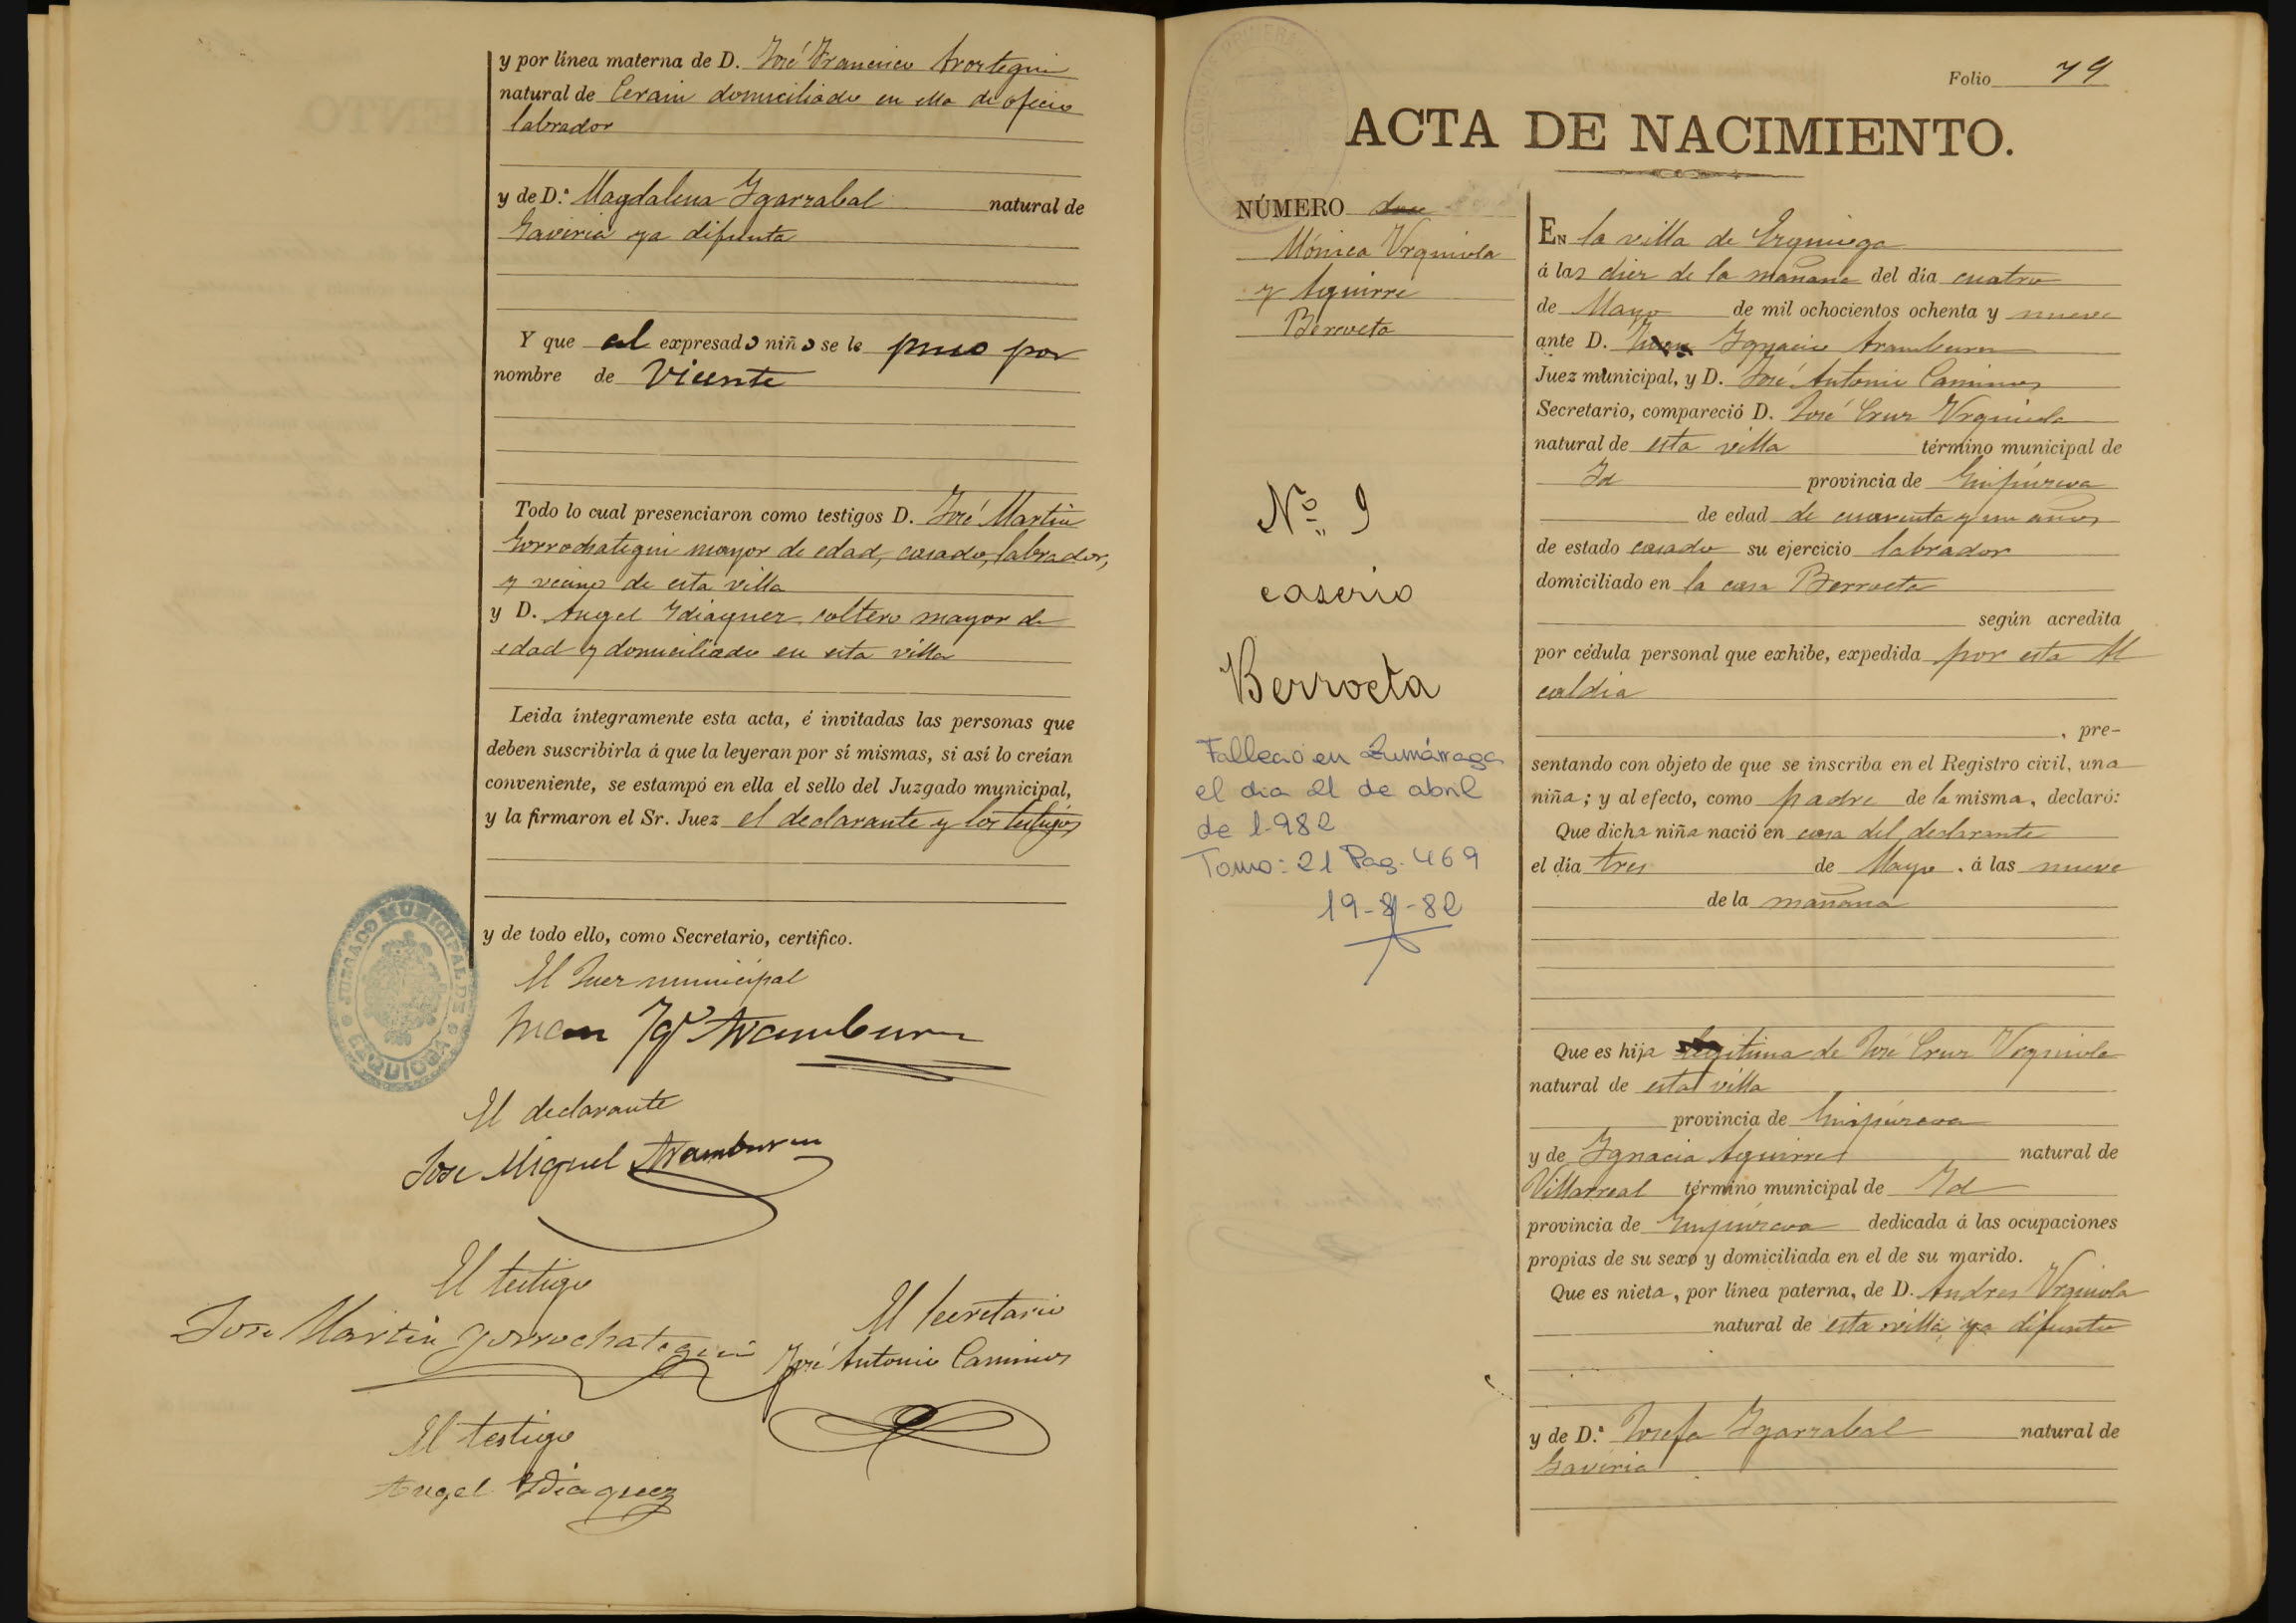 y por línea materna de D. José Francisco Aróstegui
natural de Cerain domiciliado en ella de oficio
labrador
y de D.ª Magdalena Ygarzabal natural de
Gaviria ya difunta
Y que al expresado niño se le puso por
nombre de Vicente
Todo lo cual presenciaron como testigos D. José Martin
Gorrochategui mayor de edad, casado, labrador,
y vecino de esta villa
y D. Angel Ydiaquez soltero mayor de
edad y domiciliado en esta villa
Leida íntegramente esta acta, é invitadas las personas que
deben suscribirla á que la leyeran por sí mismas, si así lo creían
conveniente, se estampó en ella el sello del Juzgado municipal,
y la firmaron el Sr. Juez el declarante y los testigos
y de todo ello, como Secretario, certifico.
JUZGADO MUNICIPAL DE EZQUIOGA
El Juez municipal
Juan Ygº Aramburu
El declarante
Jose Miguel Aramburu
El testigo
Jose Martin Gorrochategui
El Secretario
José Antonio Caminos
El testigo
Angel Ydiaquez
Folio 79
ACTA DE NACIMIENTO.
NÚMERO
Mónica Urquiola
y Aguirre
Berroeta
Nº 9
caserio
Berroeta
Fallecio en Zumárraga
el dia 21 de abril
de 1.982
Tomo: 21 Pag. 469
En la villa de Ezquioga
á las diez de la mañana del día cuatro
de Mayo de mil ochocientos ochenta y nueve
ante D. Juan Ygnacio Aramburu
Juez municipal, y D. José Antonio Caminos
Secretario, compareció D. José Cruz Urquiola
natural de esta villa término municipal de
Id provincia de Guipúzcoa
de edad de cuarenta y un años
de estado casado su ejercicio labrador
domiciliado en la casa Berroeta
según acredita
por cédula personal que exhibe, expedida por esta Al
caldia
, pre-
sentando con objeto de que se inscriba en el Registro civil, una
niña; y al efecto, como padre de la misma, declaró:
Que dicha niña nació en casa del declarante
el día tres de Mayo, á las nueve
de la mañana
Que es hija legitima de José Cruz Urquiola
natural de esta villa
provincia de Guipúzcoa
y de Ygnacia Aguirre natural de
Villarreal término municipal de Id
provincia de Guipúzcoa dedicada á las ocupaciones
propias de su sexo y domiciliada en el de su marido.
Que es nieta, por línea paterna, de D. Andres Urquiola
natural de esta villa ya difunto
y de D.ª Josefa Ygarzabal natural de
Gaviria